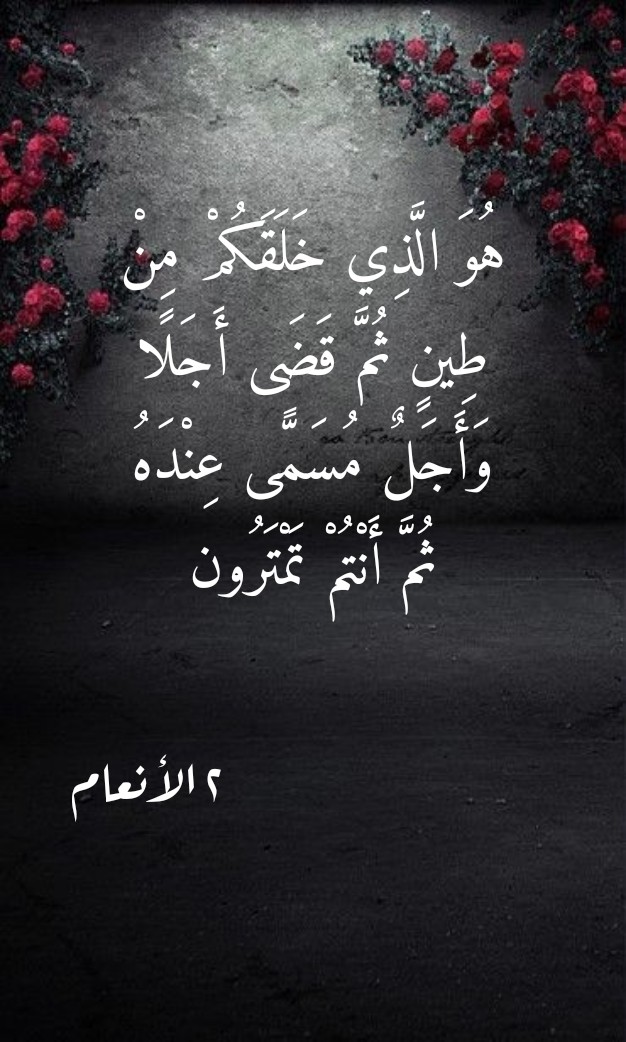 هُوَ الَّذِي خَلَقَكُمْ مِنْ
طِينٍ ثُمَّ قَضَى أَجَلًا
وَأَجَلٌ مُسَمًّى عِنْدَهُ
ثُمَّ أَنْتُمْ تَمْتَرُون
٢ الأنعام